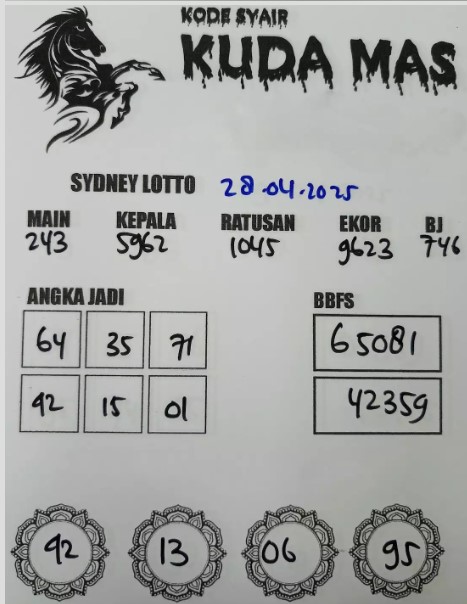 KODE SYAIR
KUDA MAS
SYDNEY LOTTO 28-04-2025
MAIN KEPALA RATUSAN EKOR BJ
243 5962 1045 9623 746
ANGKA JADI BBFS
64 35 71 65081
42 15 01 42359
42 13 06 95